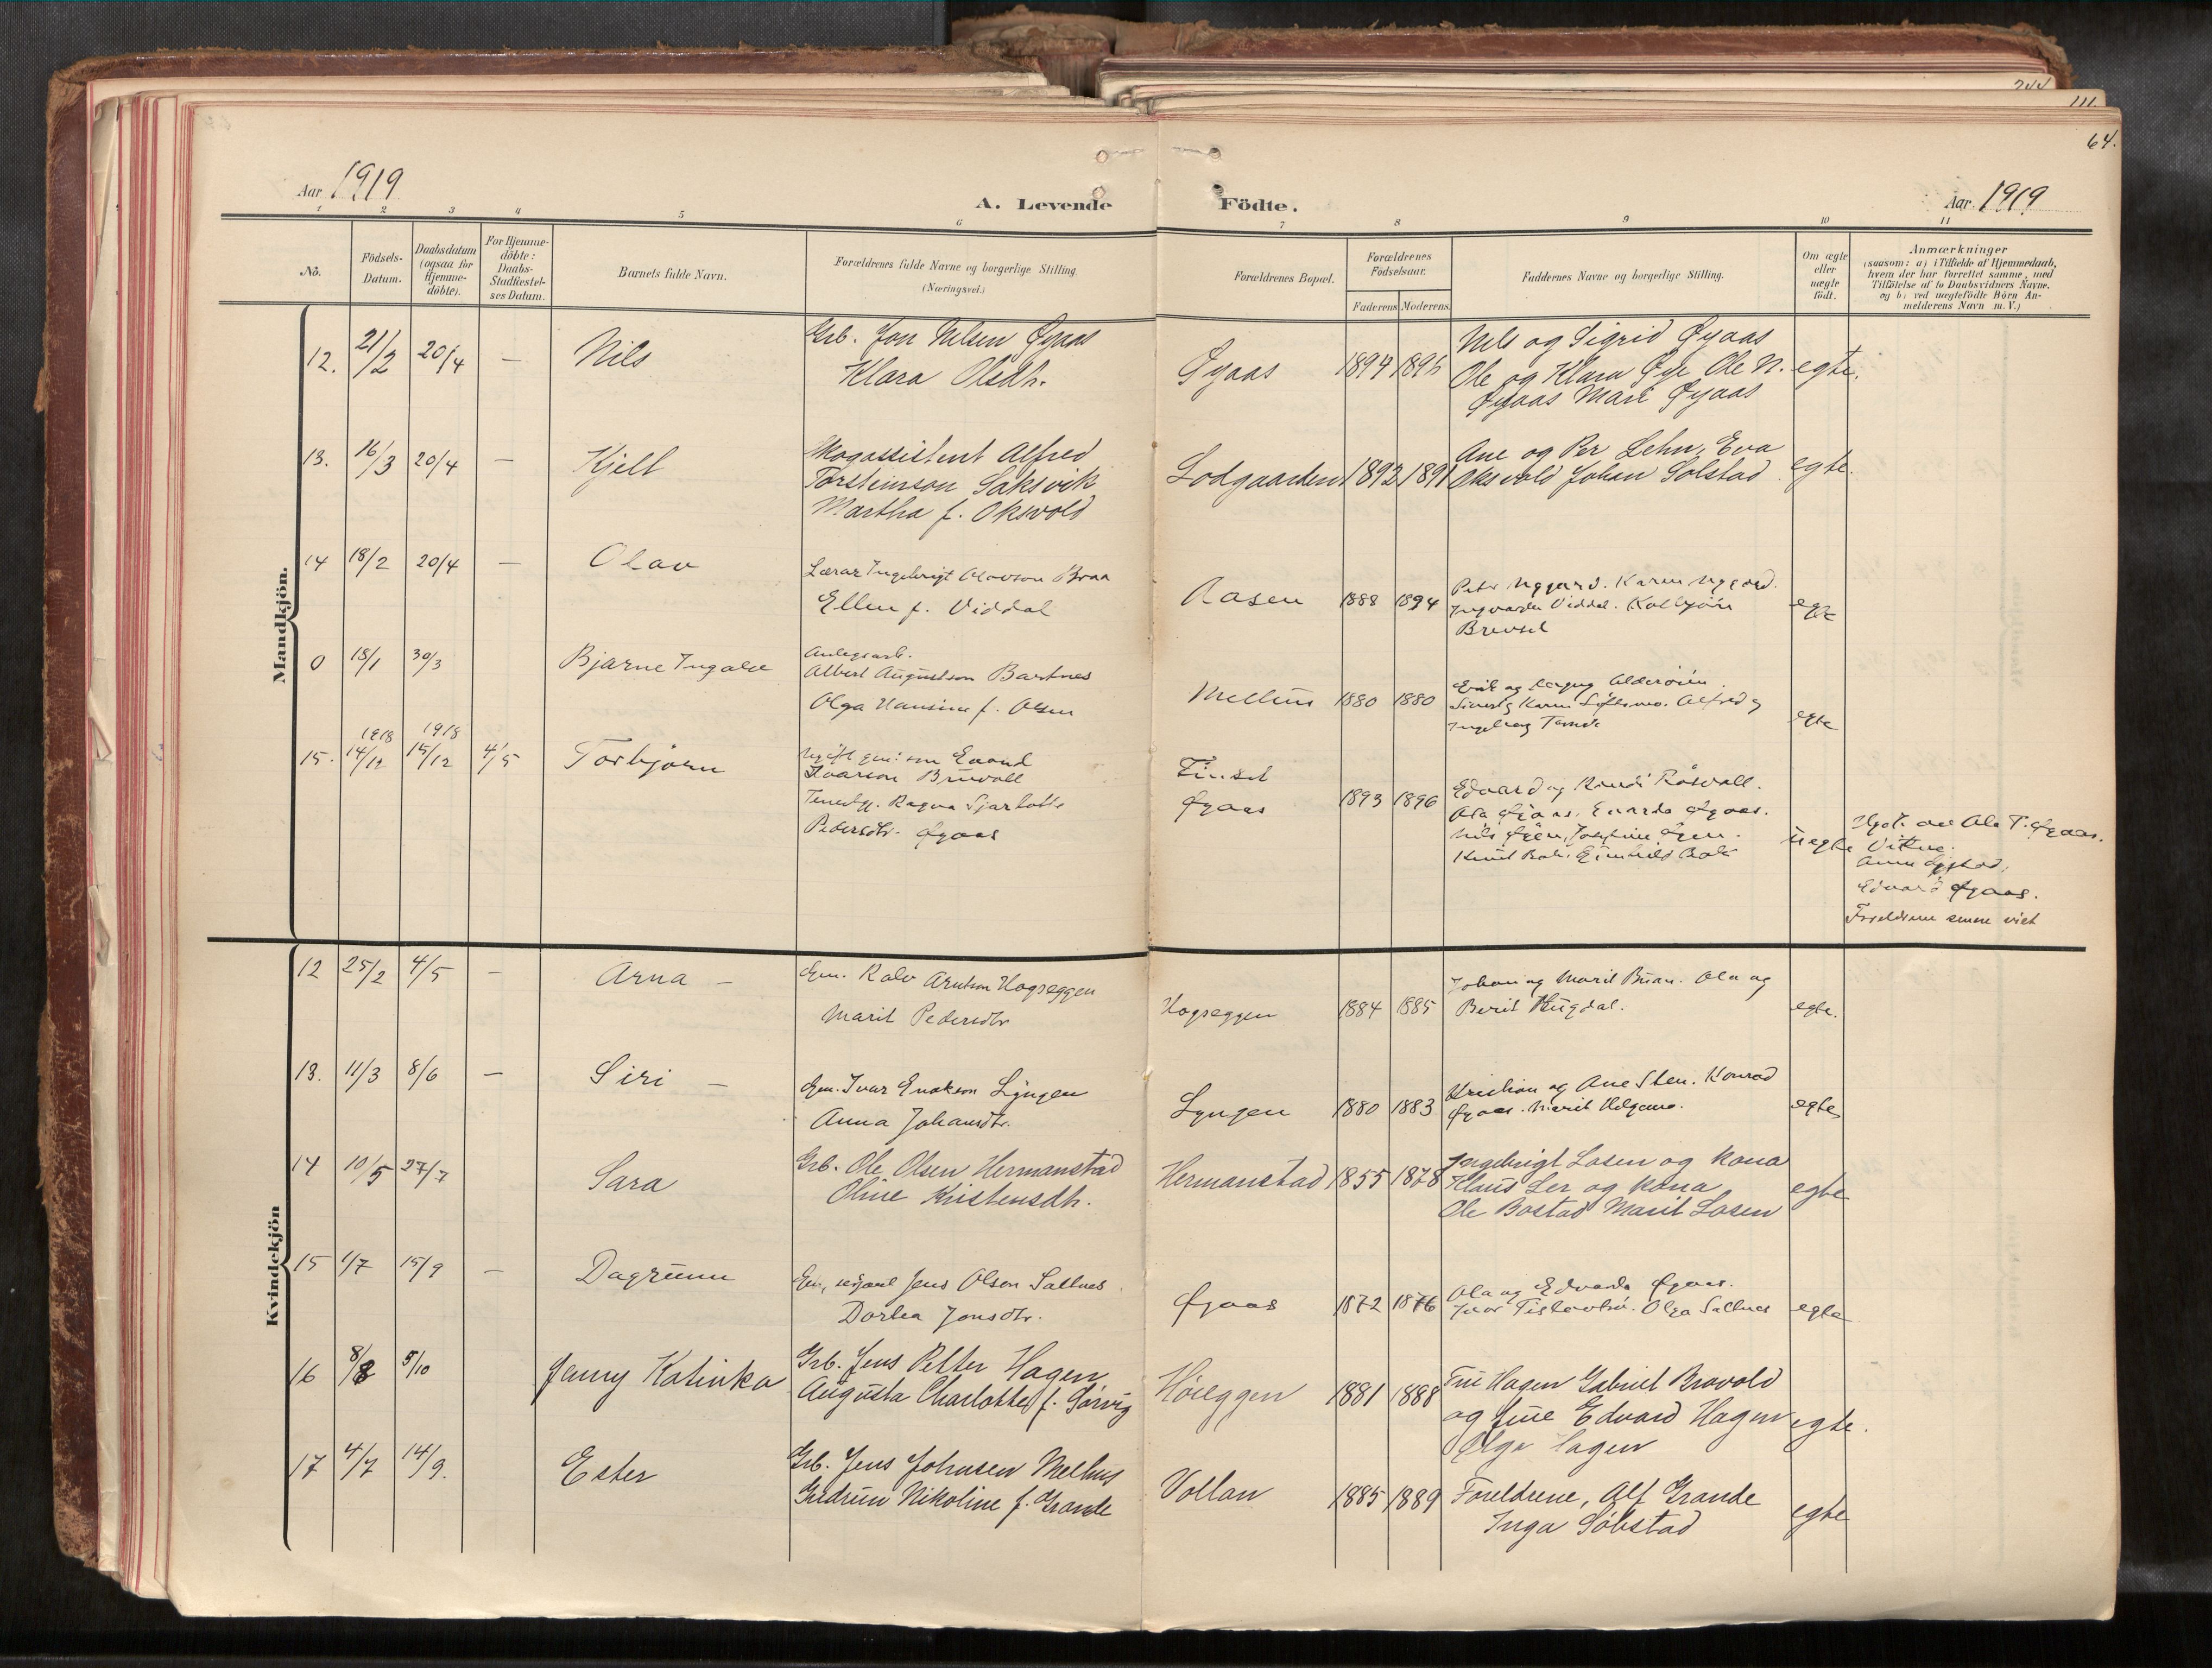 244
111.
64.
Aar 1919
A. Levende Födte.
Aar 1919
1 2 3 4 5 6 7 8 9 10 11
No.
Födsels-
Datum.
Daabsdatum
(ogsaa for
Hjemme-
döbte).
For Hjemme-
döbte:
Daabs-
Stadfæstel-
ses Datum.
Barnets fulde Navn.
Forældrenes fulde Navne og borgerlige Stilling
(Næringsvei.)
Forældrenes Bopæl.
Forældrenes
Födselsaar.
Faderens Moderens
Faddernes Navne og borgerlige Stilling.
Om ægte
eller
uægte
födt.
Anmærkninger
(saasom: a) i Tilfælde af Hjemmedaab,
hvem der har forrettet samme, med
Tilföielse af to Daabsvidners Navne.
og b) ved uægtefödte Börn An-
melderens Navn m. V.)
Mandkjön.
12. 21/2 20/4 — Nils
Grb. Jon Nilsen Øyaas
Klara Olsdtr.
Øyaas 1894 1896
Nils og Sigrid Øyaas
Ole og Klara Øye Ole N.
Øyaas Marit Øyaas
egte.
13. 16/3 20/4 — Kjell
Skogassistent Alfred
Torsteinson Saksvik
Martha f. Oksvold
Lodgaarden 1892 1891
Ane og Per Lehn, Eva
Oksvold Johan Solstad
egte.
14 18/2 20/4 — Olav
Lærar Ingebrigt Olavson Braa
Ellen f. Viddal
Rasen 1888 1894
Peter Nygard. Karen Nygard.
Ingvarda Viddal. Kolbjørn
egte
0 18/1 30/3 Bjarne Ingolv
Anlegsarb.
Albert Augustson Bartnes
Olga Hansine f. Olsen
Melhus 1880 1880
Alfred og
egte
15. 1918 14/12 1918 15/12 4/5 Torbjørn
Ivarson
Tenestgj. Ragna Sjarlotte
Pedersdtr. Øyaas
Øyaas 1893 1896
Edvard og
Ola Øyaas. Edvarda Øyaas.
Nils Øyen, Josephine Øyen.
uegte
Hjdt. av Ola T. Øyaas.
Vitne:
Edvard Øyaas.
Foreldrene senere viet
Kvindekjön
12 25/2 4/5 — Arna —
Gm. Kolv Arntson Hogseggen
Marit Pedersdtr
Hogseggen 1884 1885
Johan og Marit Buan. Ola og
Berit Hugdal.
egte.
13. 11/3 8/6 — Siri —
Gm. Ivar Enokson Lyngen
Anna Johansdtr.
Lyngen 1880 1883
Kristian og Ane Sten. Konrad
Øyaas. Marit Helgemo.
egte
14 10/5 27/7 Sara
Grb. Ole Olsen Hermanstad
Oline Kristensdtr.
Hermanstad 1855 1878
Ingebrigt Losen og kona
Klaus Ler og kona
Ole Bostad Marit Losen
egte
15 1/7 15/9 — Dagrunn
Jens Olsen Saltnes
Dorthea Jonsdtr.
Øyaas 1872 1876
Ola og Edvarda Øyaas.
Olga Saltnes
egte
16 8/8 5/10 Jenny Katinka
Grb. Jens Petter Hagen
Augusta Charlotte f. Sørvig
Høieggen 1881 1888
Hagen Gabriel Bravold
og frue Edvard Hagen
Olga Hagen
egte.
17 4/7 14/9. Ester
Grb. Jens Johnsen Melhus
Gudrun Nikoline f. Grande
Vollan 1885 1889
Foreldrene, Alf Grande
Inga Sølstad
egte